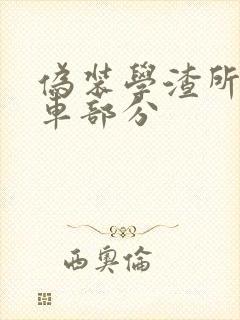 偽裝學渣所
車部分
西奧倫